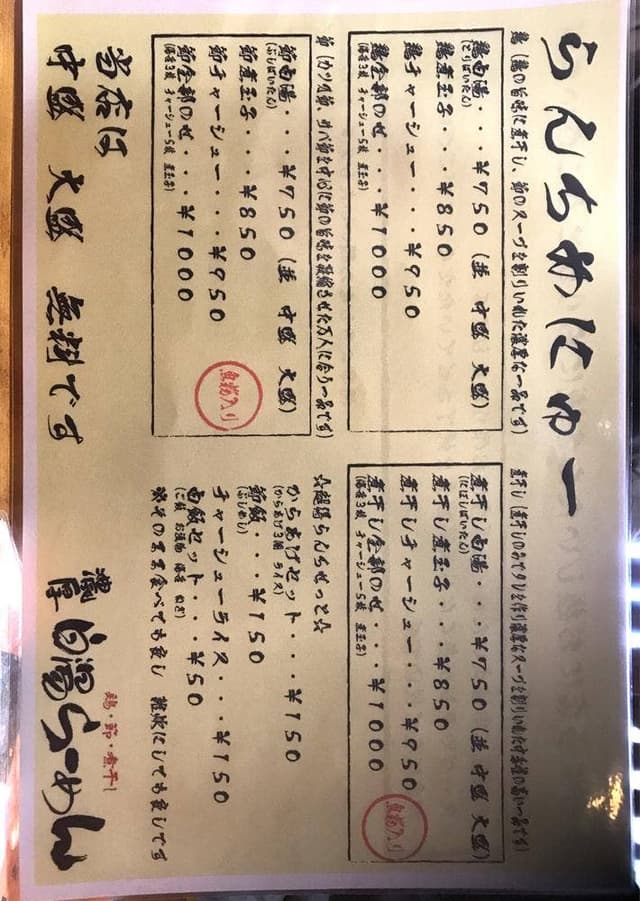 らんちめにゅー
鶏（鶏の旨味に煮干し、節のスープを割りいれた濃厚な一品です）
鶏白湯・・・￥７５０（並 中盛 大盛）
（とりぱいたん）
鶏煮玉子・・・￥８５０
鶏チャーシュー・・・・￥９５０
鶏全部のせ・・・・￥１０００
（海苔３枚 チャーシュー５枚 煮玉子）
煮干し（煮干しのみでダシを作り濃厚なスープを割りいれた中毒性の高い一品です）
煮干し白湯・・・￥７５０（並 中盛 大盛）
（にぼしぱいたん）
煮干し煮玉子・・・￥８５０
煮干しチャーシュー・・・・￥９５０
煮干し全部のせ・・・・￥１０００
（海苔３枚 チャーシュー５枚 煮玉子）
魚粉入り
節（カツオ節、サバ節を中心に節の旨味を凝縮させた万人に合う一品です）
節白湯・・・￥７５０（並 中盛 大盛）
（ぶしぱいたん）
節煮玉子・・・￥８５０
節チャーシュー・・・・￥９５０
節全部のせ・・・・￥１０００
（海苔３枚 チャーシュー５枚 煮玉子）
魚粉入り
☆超得らんちせっと☆
からあげセット・・・・￥１５０
（からあげ３個 ライス）
節飯・・・￥１５０
（ぶしめし）
チャーシューライス・・・￥１５０
白飯セット・・・・￥５０
（ご飯 お漬物 海苔 ねぎ）
※そのまま食べても良し 雑炊にしても良しです
当店は
中盛 大盛 無料です
鶏・節・煮干し
濃厚 白湯らーめん